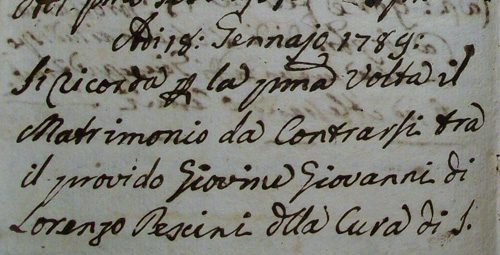 Adi 18: Gennajo 1789:
Si ricorda p la pma Volta il
Matrimonio da Contrarsi tra
il provido Giovine Giovanni di
Lorenzo Pescini dlla Cura di S.